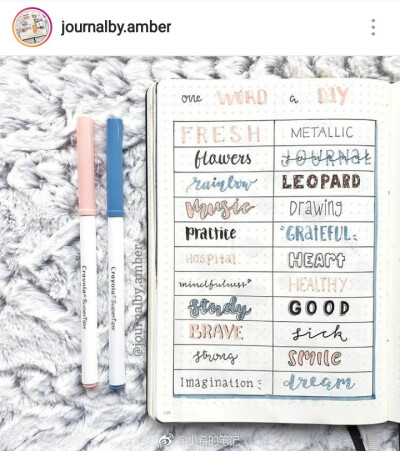 journalby.amber
one WORD a DIY
FRESH METALLIC
flowers JOURNAL
rainbow LEOPARD
Music Drawing
Practice GRATEFUL
Hospital HEART
mindfulness HEALTHY
Study GOOD
BRAVE sick
strong SMILE
Imagination dream
Crayola SuperTips
Crayola SuperTips
@journalby.amber
@小希的笔记